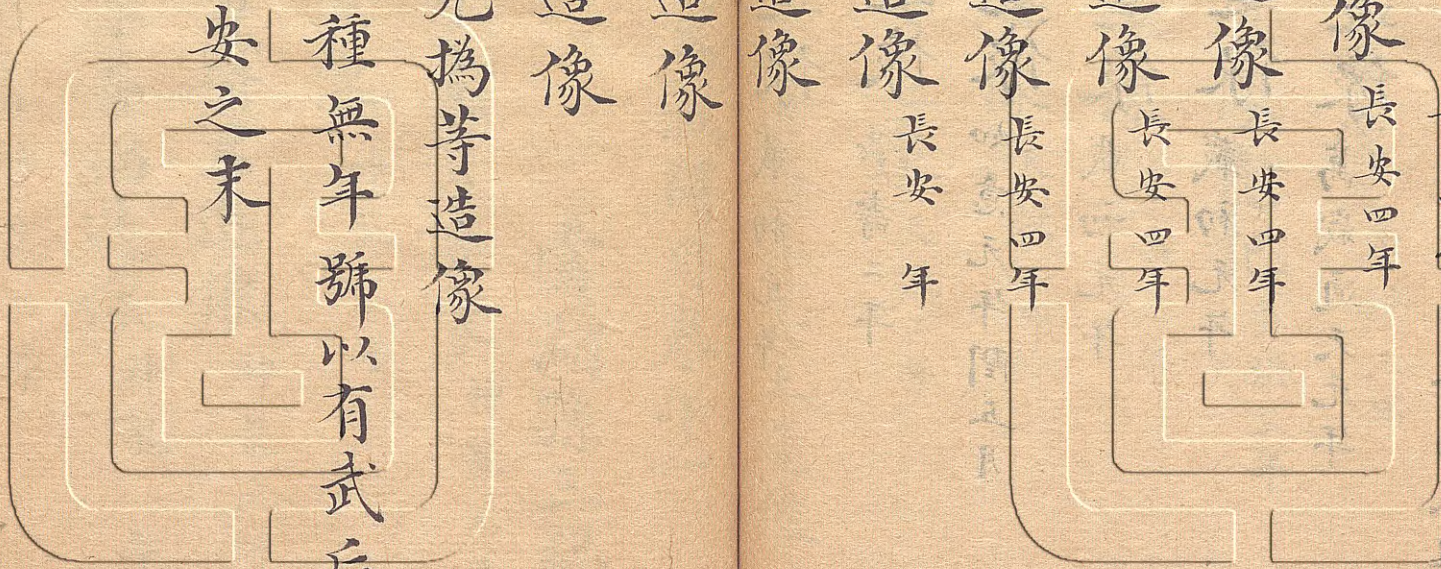 像 長安四年
造像 長安四年
造像 長安四年
造像 長安四年
造像 長安 年
造像
造像
造像
為等造像
種無年號以有武后
安之末